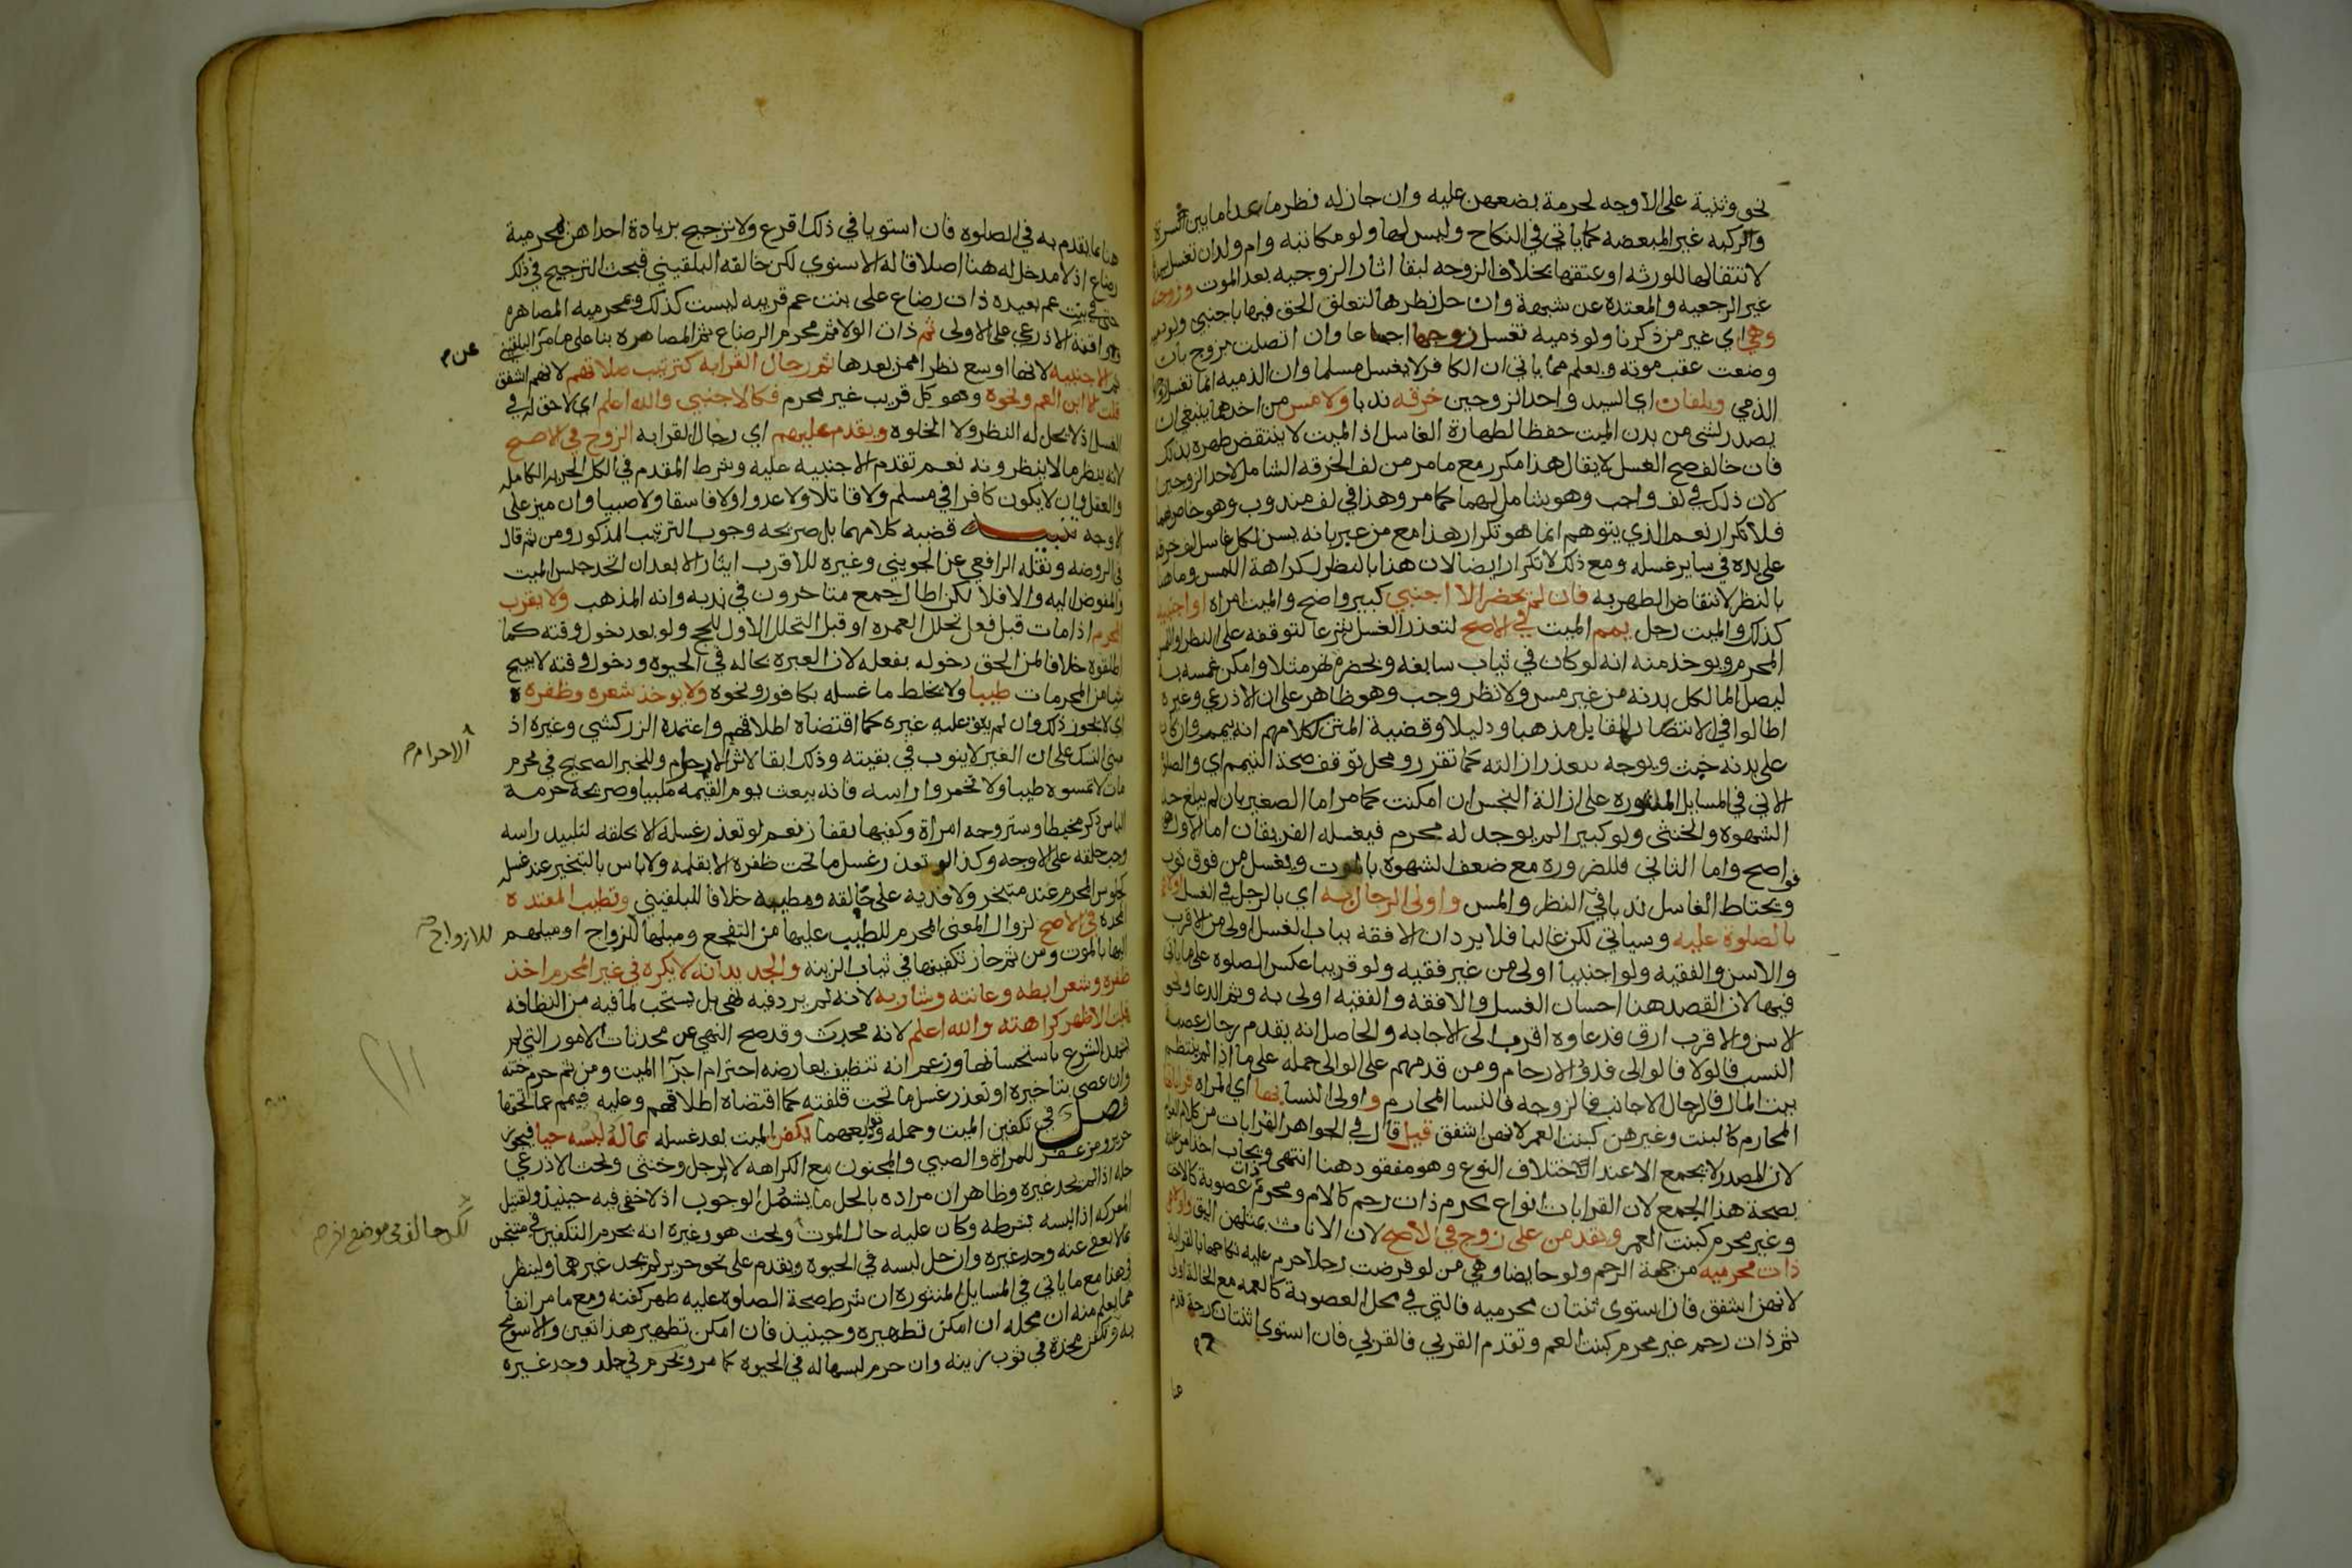 نحو وثنية على الاوجه لحرمة بضعهن عليه وان جاز له نظر ما عدا ما بين السرة
والركبه غير المبعضه كما ياتي في النكاح وليس لها ولو مكاتبه وام ولد ان تغسل سيدها
لانتقالها للورثه او عتقها بخلاف الزوجه لبقا اثار الزوجيه بعد الموت وزوجته
غير الرجعيه والمعتده عن شبهة وان حل نظرها لتعلق الحق فيها باجنبي
وهي اي غير من ذكرنا ولو ذميه تغسل زوجها اجماعا وان اتصلت بزوج بان
وضعت عقب موته ويعلم مما ياتي ان الكافر لا يغسل مسلما وان الذميه انما تغسل زوجها
الذمي ويلفان اي السيد واحد الزوجين خرقه ندبا ولا مس من احدهما ينبغي ان
يصدر لشي من بدن الميت حفظا لطهارة الغاسل اذ الميت لا ينتقض طهره بذلك
فان خالف صح الغسل لا يقال هذا مكرر مع ما مر من لف الخرقه الشامل لاحد الزوجين
لان ذلك في لف واجب وهو شامل لهما كما مر وهذا في لف مندوب وهو خاص بهما
فلا تكرار نعم الذي يتوهم انما هو تكرار هذا مع من عبر بانه يسن لكل غاسل لف خرقه
على يده في ساير غسله ومع ذلك لا تكرار ايضا لان هذا بالنظر لكراهة اللمس وما هنا
بالنظر لانتقاض الطهر به فان لم يحضر الا اجنبي كبير واضح والميت امراه او اجنبيه
كذلك والميت رجل يمم الميت في الاصح لتعذر الغسل شرعا لتوقفه على النظر او المس
المحرم ويوخذ منه انه لو كان في ثياب سابغه وبحضرة نهر مثلا وامكن غمسه به
ليصل الما لكل بدنه من غير مس ولا نظر وجب وهو ظاهر على ان الاذرعي وغيره
اطالوا في الانتصار للمقابل مذهبا ودليلا وقضية المتن ككلامهم انه ييمم وان كان
على بدنه خبث ويوجه بتعذر ازالته كما تقرر ومحل توقف صحة التيمم اي والصلاة
الاتي في المسايل المنثوره على ازالة النجس ان امكنت كما مر اما الصغير بان لم يبلغ حد
الشهوه والخنثى ولو كبيرا لم يوجد له محرم فيغسله الفريقان اما الاول
فواضح واما الثاني فللضروره مع ضعف الشهوة بالموت ويغسل من فوق ثوب
ويحتاط الغاسل ندبا في النظر والمس واولى الرجال به اي بالرجل في الغسل اولاهم
بالصلوة عليه وسياتي لكن غالبا فلا يرد ان الافقه بباب الغسل اولى من الاقرب
والاسن والفقيه ولو اجنبيا اولى من غير فقيه ولو قريبا عكس الصلوة على ما ياتي
فيها لان القصد هنا احسان الغسل والافقه والفقيه اولى به وثم الدعا ونحو
الاسن والاقرب ارق فدعاوه اقرب الى الاجابه والحاصل انه يقدم رجال عصبة
النسب فالولا فالوالي فذوو الارحام ومن قدمهم على الوالي حمله على ما اذا لم ينتظم
بيت المال فالرجال الاجانب فالزوجه فالنسا المحارم واولى النسا بها اي المراه قراباتها
المحارم كالبنت وغيرهن كبنت العم لانهن اشفق قيل قال في الجواهر القرابات من كلام العوام
لان المصدر لا يجمع الا عند اختلاف النوع وهو مفقود هنا انتهى ويجاب
بصحة هذا الجمع لان القرابات انواع محرم ذات رحم كالام ومحرم ذات عصوبة كالاخت
وغير محرم كبنت العم ويقدمن على زوج في الاصح لان الاناث بمثلهن اليق واولاهن
ذات محرميه من جهة الرحم ولو حايضا وهي من لو فرضت رجلا حرم عليه نكاحها بالقرابة
لانهن اشفق فان استوى ثنتان محرميه فالتي في محل العصوبة كالعمه مع الخالة اولى
ثم ذات رحم غير محرم كبنت العم وتقدم القربى فالقربى فان استوى ثنتان درجة قدم
هنا
هنا بما يقدم به في الصلوه فان استويا في ذلك اقرع ولا ترجيح بزيادة احداهن لمحرمية
رضاع اذ لا مدخل له هنا اصلا قاله الاسنوي لكن خالفه البلقيني فبحث الترجيح في ذلك
حتى في بنت عم بعيده ذات رضاع على بنت عم قريبه ليست كذلك وبمحرميه المصاهره
ووافقه الاذرعي على الاولى ثم ذات الولا ثم محرم الرضاع ثم المصاهره بنا على ما مر عن البلقيني
ثم الاجنبيه لانها اوسع نظرا ممن بعدها ثم رجال القرابه كترتيب صلاتهم لانهم اشفق
قلت الا ابن العم ونحوه وهو كل قريب غير محرم فكالاجنبي والله اعلم اي لا حق له في
الغسل اذ لا يحل له النظر ولا الخلوه ويقدم عليهم اي رجال القرابه الزوج في الاصح
لانه ينظر ما لا ينظرونه نعم تقدم الاجنبيه عليه وشرط المقدم في الكل الحريه الكامله
والعقل وان لا يكون كافرا في مسلم ولا قاتلا ولا عدوا ولا فاسقا ولا صبيا وان ميز على
الاوجه تنبيه قضيه كلامهما بل صريحه وجوب الترتيب المذكور ومن ثم قال
في الروضه ونقله الرافعي عن الجويني وغيره للاقرب ايثار الابعد ان اتحد جنس الميت
والمفوض اليه والا فلا لكن اطال جمع متاخرون في ندبه وانه المذهب ولا يقرب
المحرم اذا مات قبل فعل تحلل العمره او قبل التحلل الاول للحج ولو بعد دخول وقته كما
اطلقوه خلافا لمن الحق دخوله بفعله لان العبره بحاله في الحيوه ودخول وقته لا يبيح
شيا من المحرمات طيبا ولا يخلط ما غسله بكافور ونحوه ولا يوخذ شعره وظفره
اي لا يجوز ذلك وان لم يبق عليه غيره كما اقتضاه اطلاقهم واعتمده الزركشي وغيره اذ
مبنى النسك على ان الغير لا ينوب في بقيته وذلك ابقا لاثر الاحرام وللخبر الصحيح في محرم
مات لا تمسوه طيبا ولا تخمروا راسه فانه يبعث يوم القيمه ملبيا وصريحه حرمة
الباس ذكر مخيطا وستر وجه امراة وكفيها بقفاز نعم لو تعذر غسله الا بحلقه لتلبيد راسه
وجب حلقه على الاوجه وكذا لو تعذر غسل ما تحت ظفره الا بقلمه ولا باس بالتبخير عند غسله
كجلوس المحرم عند متبخر ولا فديه على حالقه ومطيبه خلافا للبلقيني وتطيب المعتده
المحده في الاصح لزوال المعنى المحرم للطيب عليها من التفجع وميلها للزواج او ميلهم
اليها بالموت ومن ثم جاز تكفينها في ثياب الزينه والجديد انه لا يكره في غير المحرم اخذ
ظفره وشعر ابطه وعانته وشاربه لانه لم يرد فيه نهي بل يستحب لما فيه من النظافه
قلت الاظهر كراهته والله اعلم لانه محدث وقد صح النهي عن محدثات الامور التي لم
يشهد الشرع باستحسانها وزعم انه تنظيف يعارضه احترام اجزا الميت ومن ثم حرم ختنه
وان عصى بتاخيره او تعذر غسل ما تحت قلفته كما اقتضاه اطلاقهم وعليه فييمم عما تحتها
فصل في تكفين الميت وحمله وتوابعهما يكفن الميت بعد غسله بما له لبسه حيا فيجوز
حرير ومزعفر للمراة والصبي والمجنون مع الكراهه لا لرجل وخنثى وبحث الاذرعي
حله اذا لم نجد غيره وظاهر ان مراده بالحل ما يشمل الوجوب اذ لا خفى فيه حينيذ ولقتيل
المعركه اذا البسه بشرطه وكان عليه حال الموت وبحث هو وغيره انه يحرم التكفين في متنجس
بما لا يعفى عنه وجد غيره وان حل لبسه في الحيوه ويقدم على نحو حرير لم يجد غيرهما ولينظر
في هذا مع ما ياتي في المسايل المنثوره ان شرط صحة الصلوه عليه طهر كفنه ومع ما مر انفا
مما يعلم منه ان محله ان امكن تطهيره وحينيذ فان امكن تطهير هذا تعين والا سومح
به وتكفن محدة في ثوب زينه وان حرم لبسها له في الحيوه كما مر ويحرم في جلد وجد غيره
عن م
الاحرام صح
للازواج صح